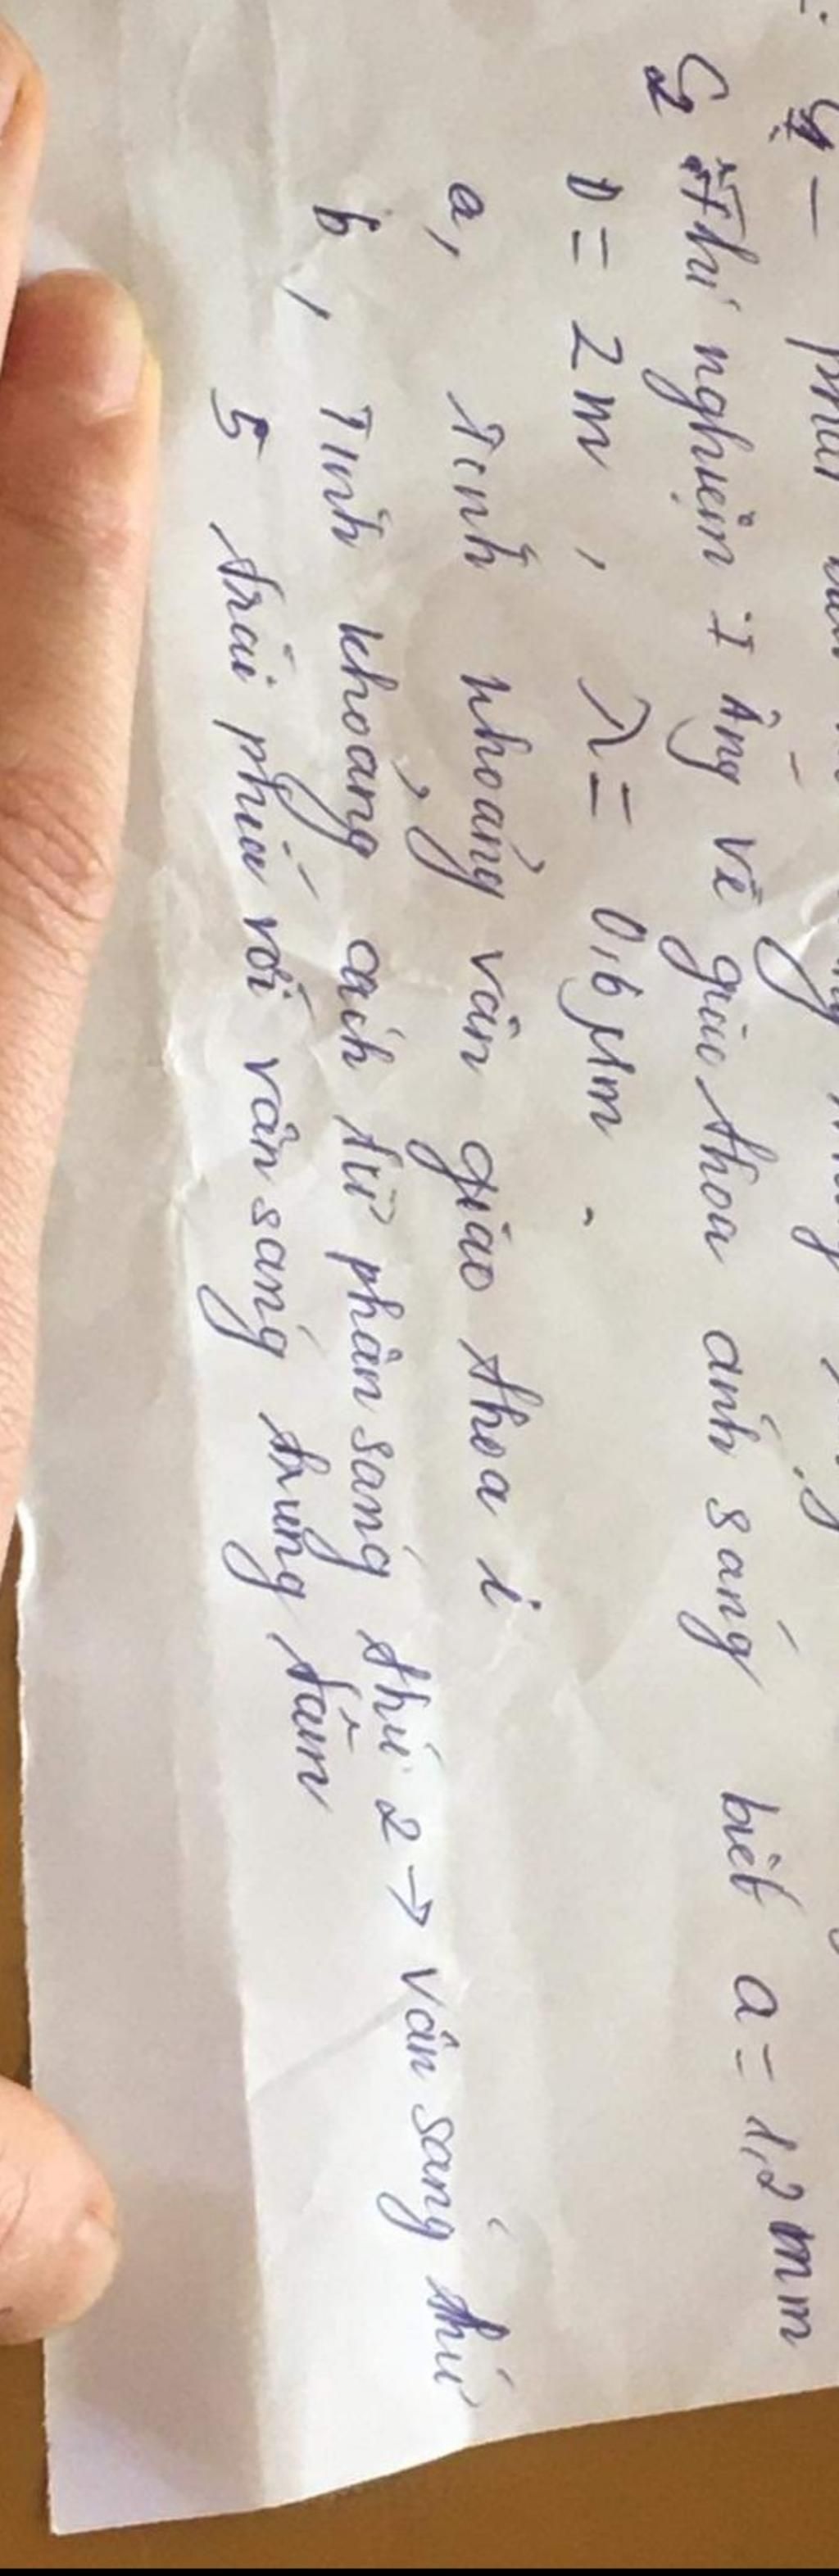 C2 Thí nghiệm I âng về giao thoa ánh sáng biết a = 1,2 mm
D = 2 m, λ = 0,6 μm.
a, Tính khoảng vân giao thoa i
b, Tính khoảng cách từ phân sáng thứ 2 → vân sáng thứ
5 trái phía với vân sáng trung tâm